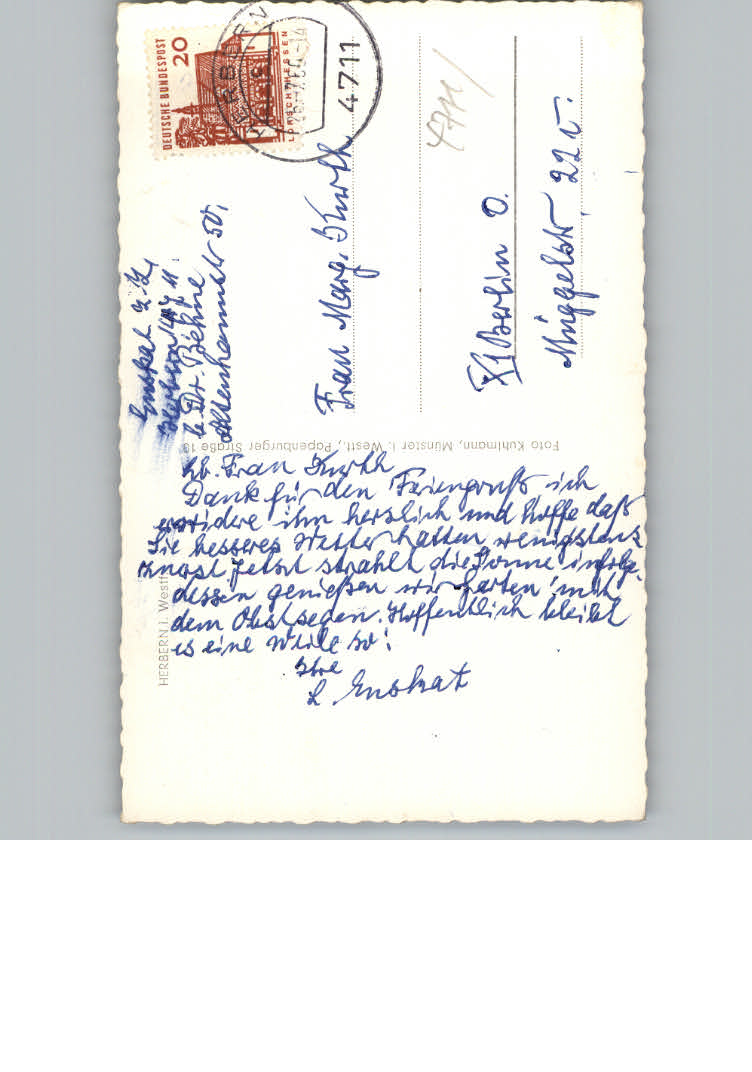 DEUTSCHE BUNDESPOST
20
LORSCH/HESSEN
HERBERN
4711
4711
Enskat z. Zt.
Herbern 4711
b. Dr. Böhne
Altenhammstr 50,
Frau Marg. Kurth
X1 Berlin O.
Müggelstr. 22 v.
Foto Kuhlmann, Münster i. Westf., Papenburger Straße 13
HERBERN i. Westf
Lb. Frau Kurth
Dank für den Feriengruß ich
erwidere ihn herzlich und hoffe daß
Sie besseres Wetter hatten wenigstens
Jetzt strahlt die Sonne infolge
dessen genießen wir Garten mit
dem Obstsegen. Hoffentlich bleibt
es eine Weile so!
Ihre
L. Enskat